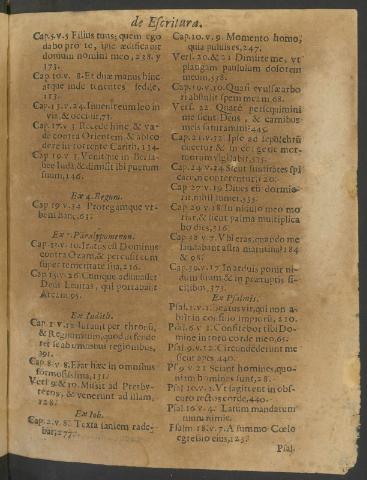 de Escritura.
Cap.5.v.5 Filius tuus, quem ego
dabo pro te, ipse ædificabit
domum nomini meo, 238. y
173.
Cap.10.v.8. Et duæ manus hinc
atque inde tenentes sedile,
183.
Cap.13.v.24. Invenit eum leo in
via, & occidit, 71.
Cap.17.v.3 Recede hinc & va-
de contra Orientem, & absco
dere in torrente Carith, 134.
Cap.19.v.3. Venitque in Bersa-
bee Iudà, & dimisit ibi puerum
suum, 146.
Ex 4. Regum.
Cap.19.v.34 Protegamque vr-
bem hanc, 63.
Ex 1. Paralypomenon.
Cap.13.v.10. Iratus est Dominus
contra Ozam, & percussit eum
super temeritate sua, 216.
Cap.15.v.26 Cumque adiuvasset
Deus Levitas, qui portabant
Arcam 95.
Ex Iudith.
Cap.1.v.12 Iurauit per thronū,
& Regnum suum, quod defende
ret se ab omnibus regionibus,
391.
Cap.8.v.8. Erat hæc in omnibus
formosissima, 131.
Vers. 9. & 10. Misit ad Presby-
teros, & venerunt ad illam,
128.
Ex Iob.
Cap.2.v.8. Testa saniem rade-
bat, 277.
Cap.10.v.9. Momento homo,
quia pulvis es, 247.
Vers. 20. & 21 Dimitte me, vt
plangam paululum dolorem
meum, 358.
Cap.19.v.10. Quasi evulsæ arbo
ri abstulit spem meam 68.
Vers. 22. Quare persequimini
me sicut Deus, & carnibus
meis saturamini 445.
Cap.21.v.32 Ipse ad sepulchrū
ducetur & in congerie mor-
tuorum vigilabit, 535.
Cap.24.v.24 Sicut summitates spi
carum conterentur, 120.
Cap 27.v.19 Dives cū dormie-
rit nihil tulmet, 535.
Cap 29.v.18. In nidulo meo mo
riar, & sicut palma multiplica
bo dies, 316.
Cap 38 v.7. Vbi eras, quando me
laudabant astra matutina? 184
& 98.
Cap.39.v.17 In arduis ponit ni-
dum suum & in præruptis si-
licibus, 373.
Ex Psalmis.
Psal.1.v.1. Beatus vir, qui non a-
bijt in consilio impiorū, 210.
Psal. 6 v 1. Confitebor tibi Do-
mine in toto corde meo, 65.
Psal 9.v.12. Circundederunt me
sicut apes 440.
Psal. 9 v 21 Sciant homines, quo-
niam homines sunt, 28.
Psal. 10.v.3. Vt sagittent in obs-
curo rectos corde, 440.
Psal.16 v.4. Latum mandatum
tuum nimis.
Psalm.18.v.7. A summo Cœlo
egressio eius, 125.
Psal.